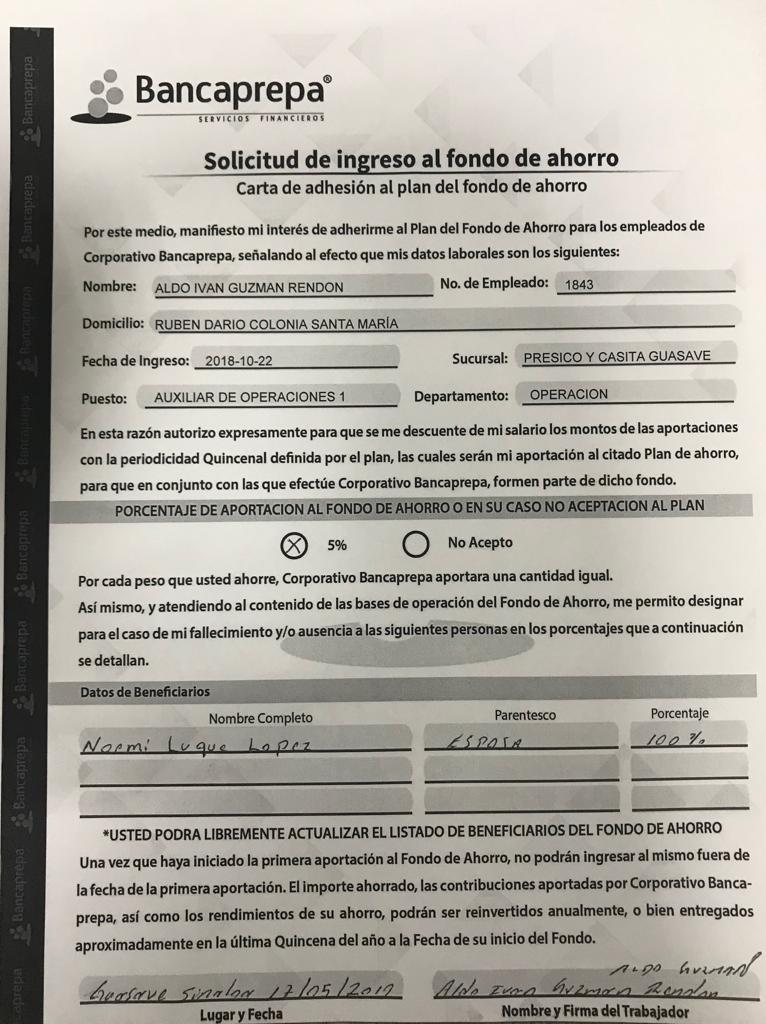 Bancaprepa®
SERVICIOS FINANCIEROS
Solicitud de ingreso al fondo de ahorro
Carta de adhesión al plan del fondo de ahorro
Por este medio, manifiesto mi interés de adherirme al Plan del Fondo de Ahorro para los empleados de
Corporativo Bancaprepa, señalando al efecto que mis datos laborales son los siguientes:
Nombre: ALDO IVAN GUZMAN RENDON No. de Empleado: 1843
Domicilio: RUBEN DARIO COLONIA SANTA MARÍA
Fecha de Ingreso: 2018-10-22 Sucursal: PRESICO Y CASITA GUASAVE
Puesto: AUXILIAR DE OPERACIONES 1 Departamento: OPERACION
En esta razón autorizo expresamente para que se me descuente de mi salario los montos de las aportaciones
con la periodicidad Quincenal definida por el plan, las cuales serán mi aportación al citado Plan de ahorro,
para que en conjunto con las que efectúe Corporativo Bancaprepa, formen parte de dicho fondo.
PORCENTAJE DE APORTACION AL FONDO DE AHORRO O EN SU CASO NO ACEPTACION AL PLAN
5% No Acepto
Por cada peso que usted ahorre, Corporativo Bancaprepa aportara una cantidad igual.
Así mismo, y atendiendo al contenido de las bases de operación del Fondo de Ahorro, me permito designar
para el caso de mi fallecimiento y/o ausencia a las siguientes personas en los porcentajes que a continuación
se detallan.
Datos de Beneficiarios
Nombre Completo Parentesco Porcentaje
Noemi Luque Lopez ESPOSA 100 %
*USTED PODRA LIBREMENTE ACTUALIZAR EL LISTADO DE BENEFICIARIOS DEL FONDO DE AHORRO
Una vez que haya iniciado la primera aportación al Fondo de Ahorro, no podrán ingresar al mismo fuera de
la fecha de la primera aportación. El importe ahorrado, las contribuciones aportadas por Corporativo Banca-
prepa, así como los rendimientos de su ahorro, podrán ser reinvertidos anualmente, o bien entregados
aproximadamente en la última Quincena del año a la Fecha de su inicio del Fondo.
ALDO GUZMAN
Guasave Sinaloa 17/05/2019 Aldo Ivan Guzman Rendon
Lugar y Fecha Nombre y Firma del Trabajador
Bancaprepa
Bancaprepa
Bancaprepa
Bancaprepa
Bancaprepa
Bancaprepa
Bancaprepa
Bancaprepa
caprepa